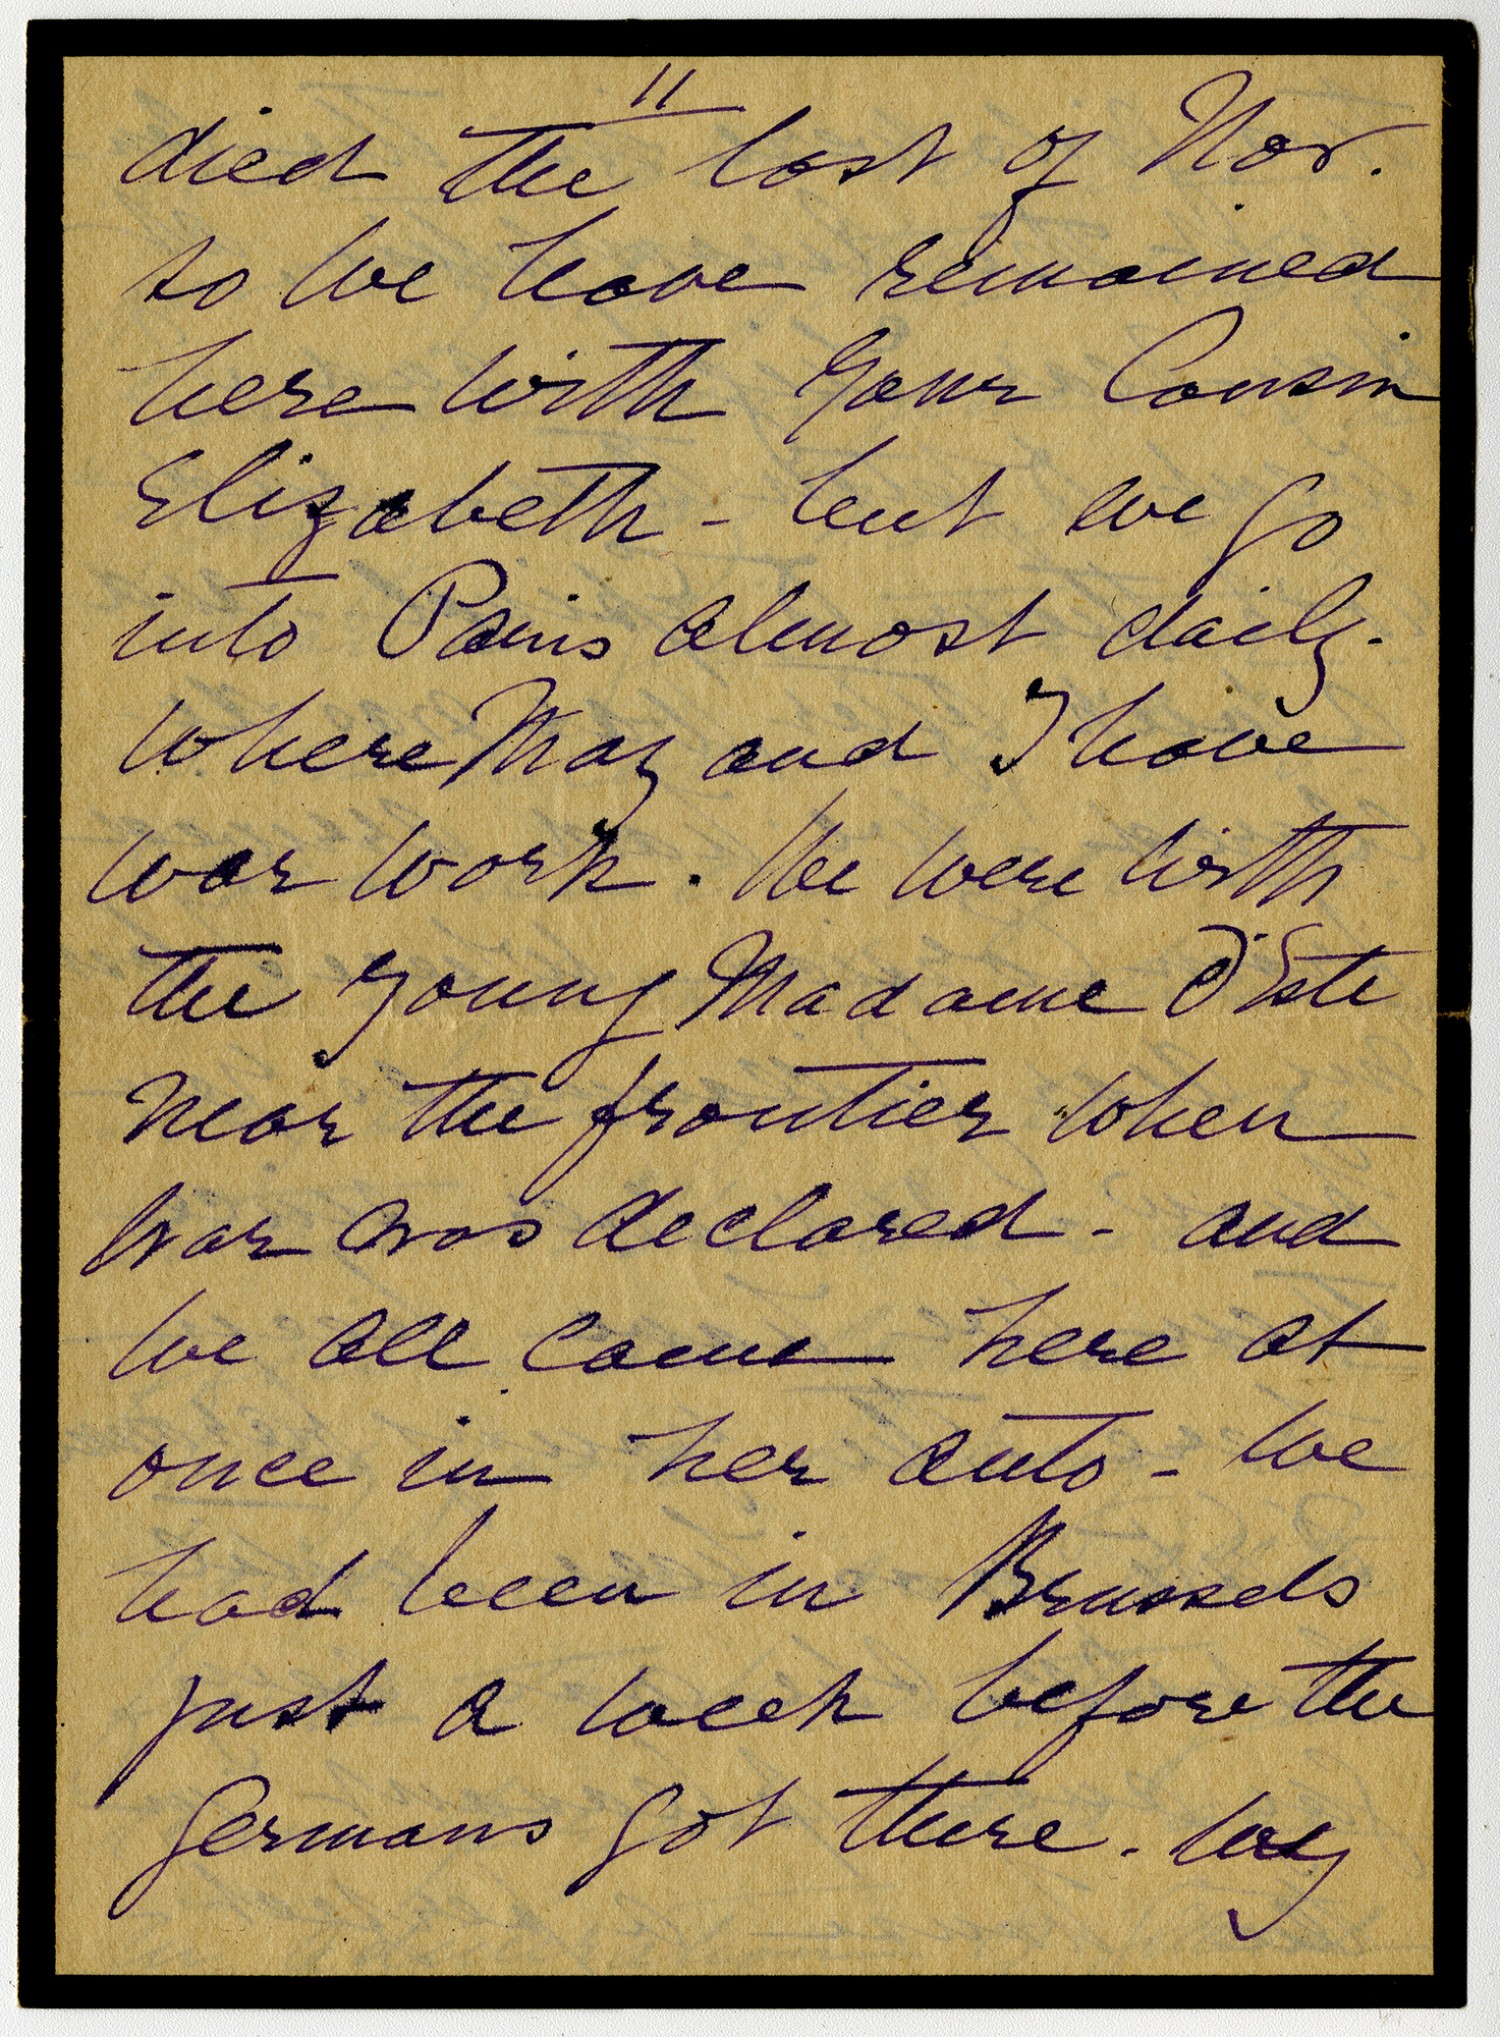 11
died the last of Nov.
so we have remained
here with your Cousin
Elizabeth - but we go
into Paris almost daily -
where May and I have
war work. We were with
the young Madame d'Este
near the frontier when
war was declared - and
we all came here at
once in her auto - we
had been in Brussels
just a week before the
Germans got there. My